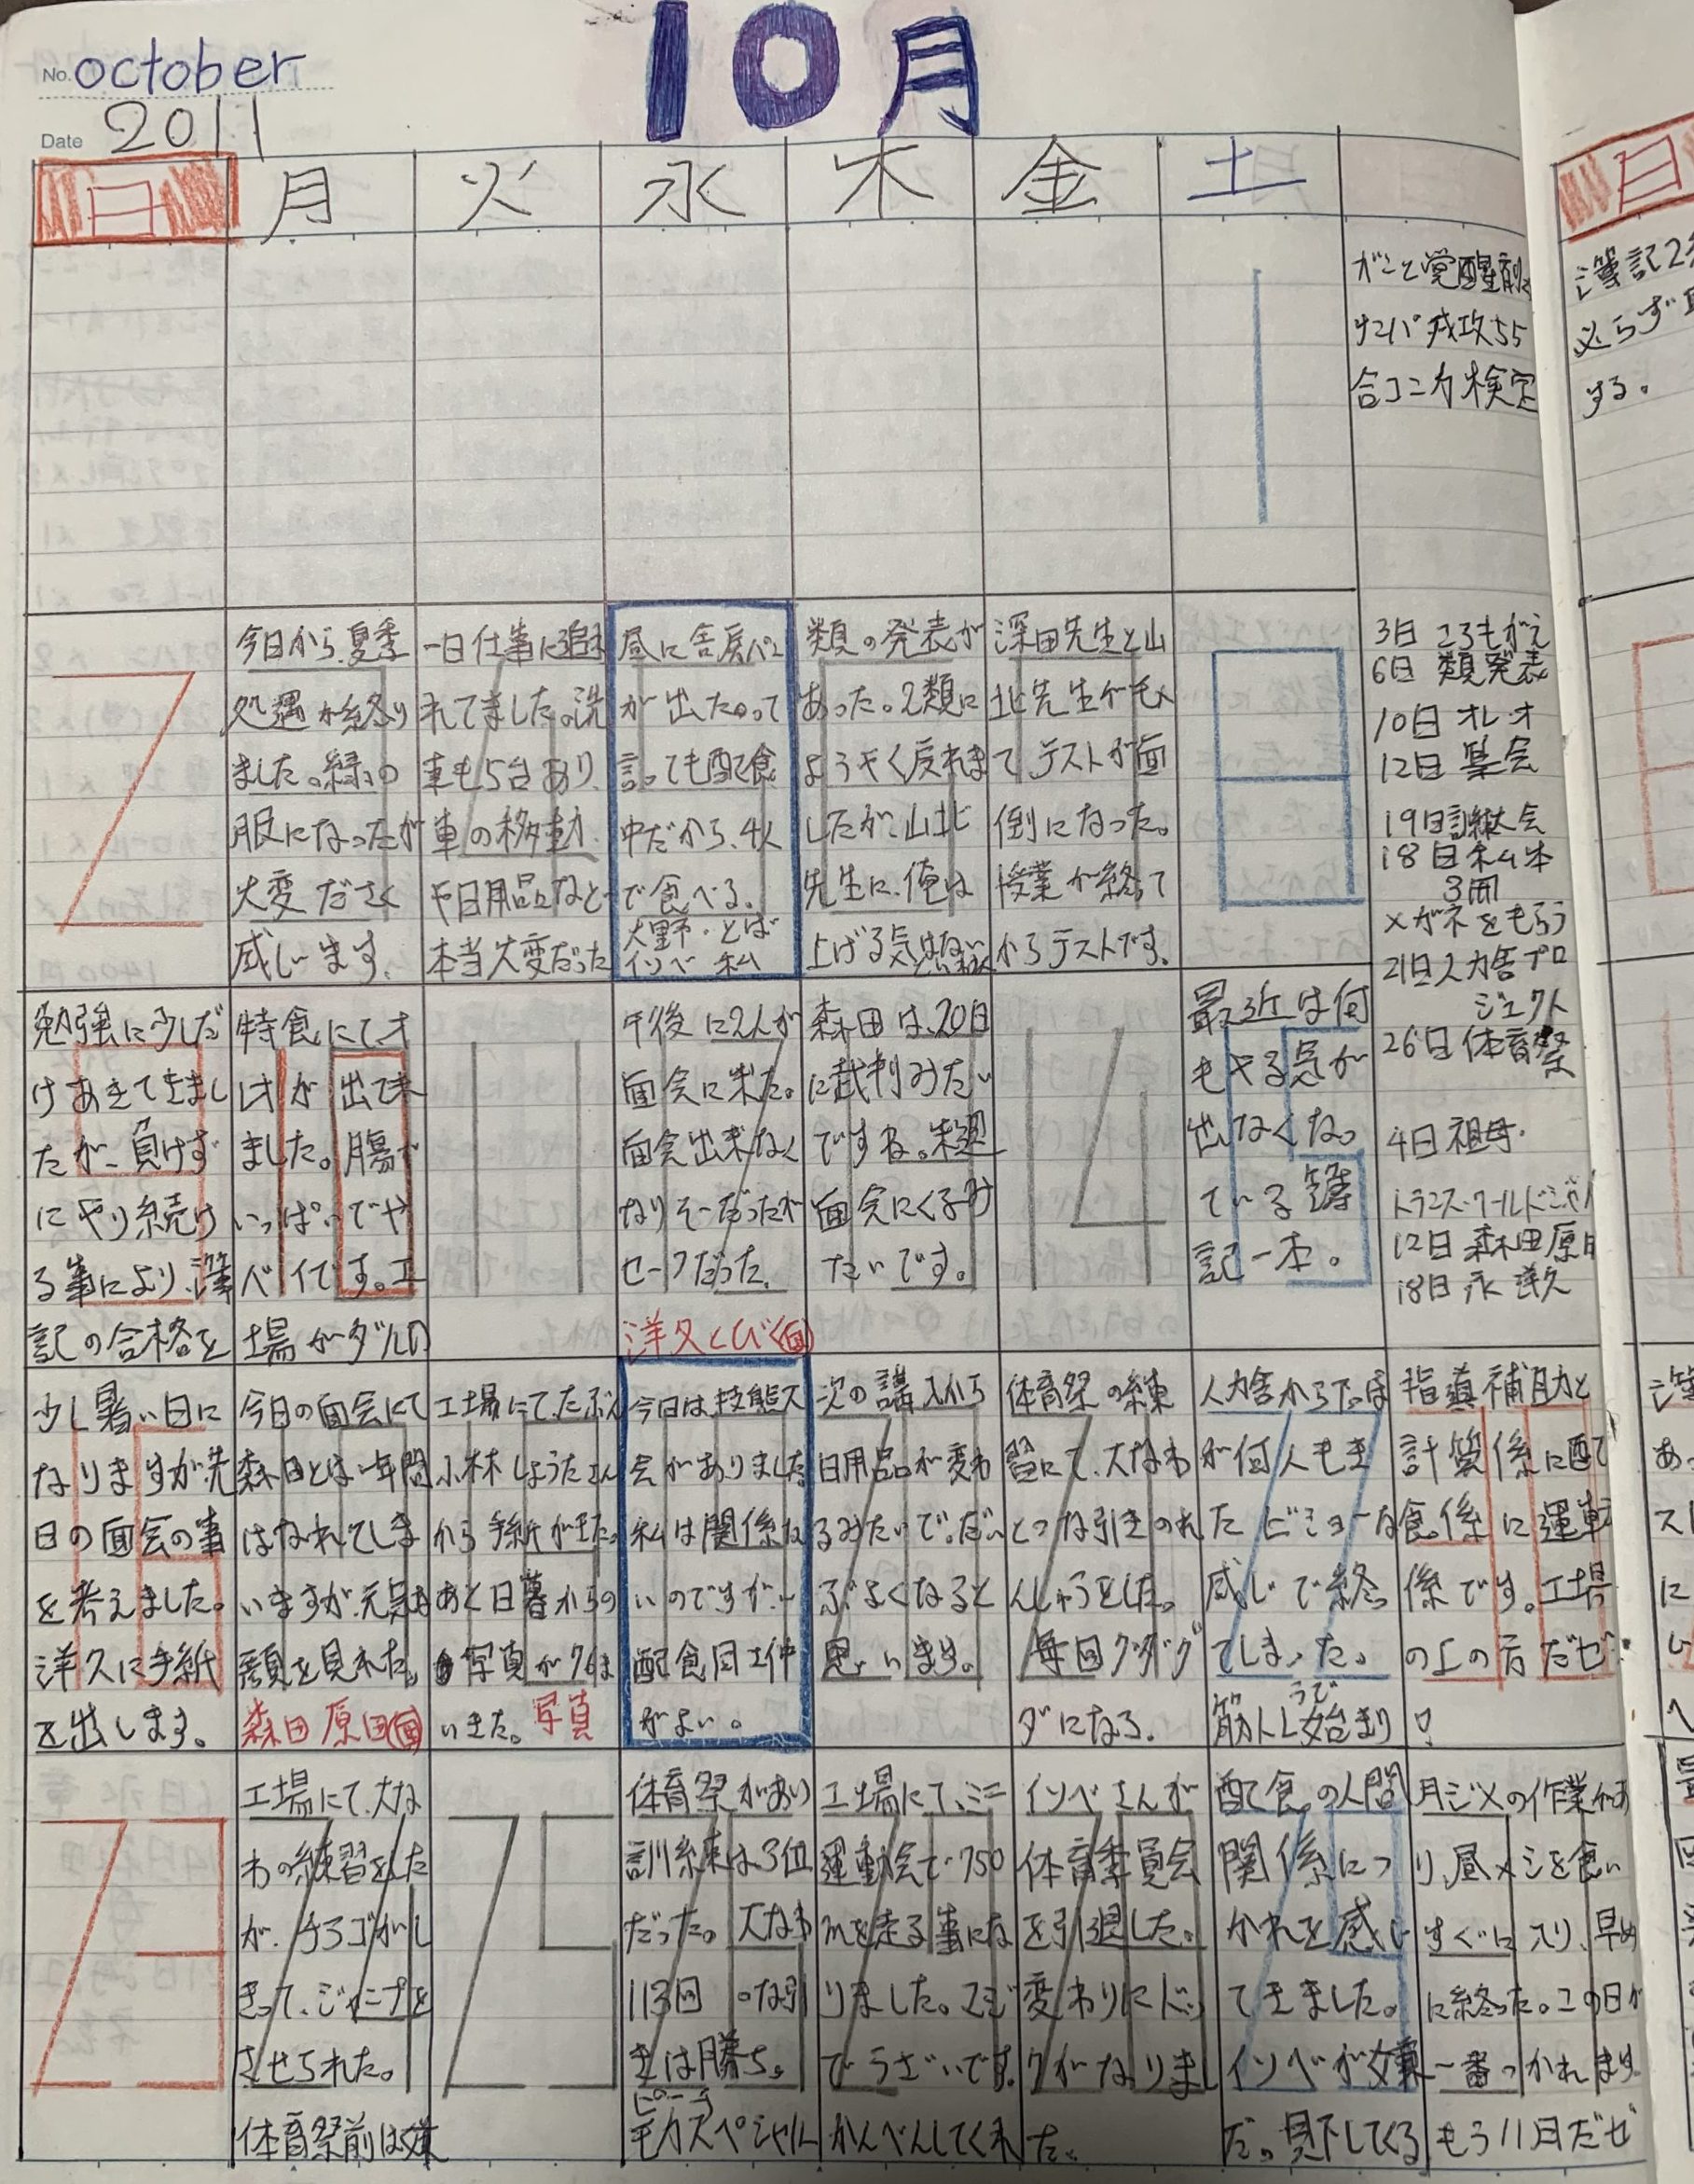 No. october
10月
Date 2011
日 月 火 水 木 金 土
1
ガンと覚醒剤
ナンパ成攻
合コン力検定
2
3
今日から夏季
処遇が終り
ました。緑の
服になったが
大変ださく
感じます。
4
一日仕事に追わ
れてました。洗
車も5台あり、
車の移動
や日用品など
本当大変だった
5
昼に舎房パン
が出た。
言っても配食
中だから、4人
で食べる。
大野・とば
イソベ 私
6
類の発表が
あった。2類に
ようやく戻れま
したが、山北
先生に、俺は
上げる気はない
7
深田先生と山
北先生がもめ
て、テストが面
倒になった。
授業が終って
からテストです。
8
3日 ころもがえ
6日 類発表
10日 オレオ
12日 集会
19日
18日 私本
3冊
メガネをもらう
21日 人力舎プロ
ジェクト
26日 体育祭
4日 祖母
12日 森田 原田
18日 永 洋久
9
勉強に少しだ
けあきてきまし
たが、負けず
にやり続け
る事により、簿
記の合格を
10
特食にて、オ
レオが出て来
ました。腸が
いっぱいでや
ベイです。工
場がダルい
11
12
午後に2人が
面会に来た。
面会出来なく
なりそーだったが
セーフだった。
洋久 くび 面
13
森田は、20日
に裁判みたい
ですね。来週
面会にくるみ
たいです。
14
15
最近は何
もやる気が
出なくなっ
ている 簿
記一本。
16
少し暑い日に
なりますが先
日の面会の事
を考えました。
洋久に手紙
を出します。
17
今日の面会にて
森田とは一年間
はなれてしま
いますが、元気な
顔を見れた。
森田 原田 面
18
工場にて、たぶん
小林しょうたさん
から手紙がきた。
あと日暮からの
写真が76ま
いきた。 写真
19
今日は技能大
会がありました。
私は関係な
いのですが、
配食同士仲
がよい。
20
次の講入から
日用品が変わ
るみたいで、だい
ぶよくなると
思います。
21
体育祭の練
習にて、大なわ
とつな引きのれ
んしゅうをした。
毎回グダグ
ダになる。
22
人力舎からたっぽ
が何人もき
たビミョーな
感じで終っ
てしまった。
うで
筋トレ始まり
指導補助と
計算係に配
食係に運転
係です。工場
の上の方だぜ
!
23
24
工場にて、大な
わの練習をした
が、チョコがし
きって、ジャンプを
させられた。
体育祭前は嫌
25
26
体育祭があり
訓練は3位
だった。大なわ
113回 つな引
きは勝ち。
毛カスペシャル
27
工場にて、ミニ
運動会で、750
mを走る事にな
りました。マジ
でうざいです。
かんべんしてくれ
28
イソベさんが
体育委員会
を引退した。
変わりにドッ
クがなりまし
た。
29
配食の人間
関係につ
かれを感じ
てきました。
イソベが文句
だ。見下してくる
月ジメの作業があ
り、昼メシを食い
すぐに入り、早め
に終った。この日が
一番つかれます
もう11月だぜ
日
簿記2
必らず
する。